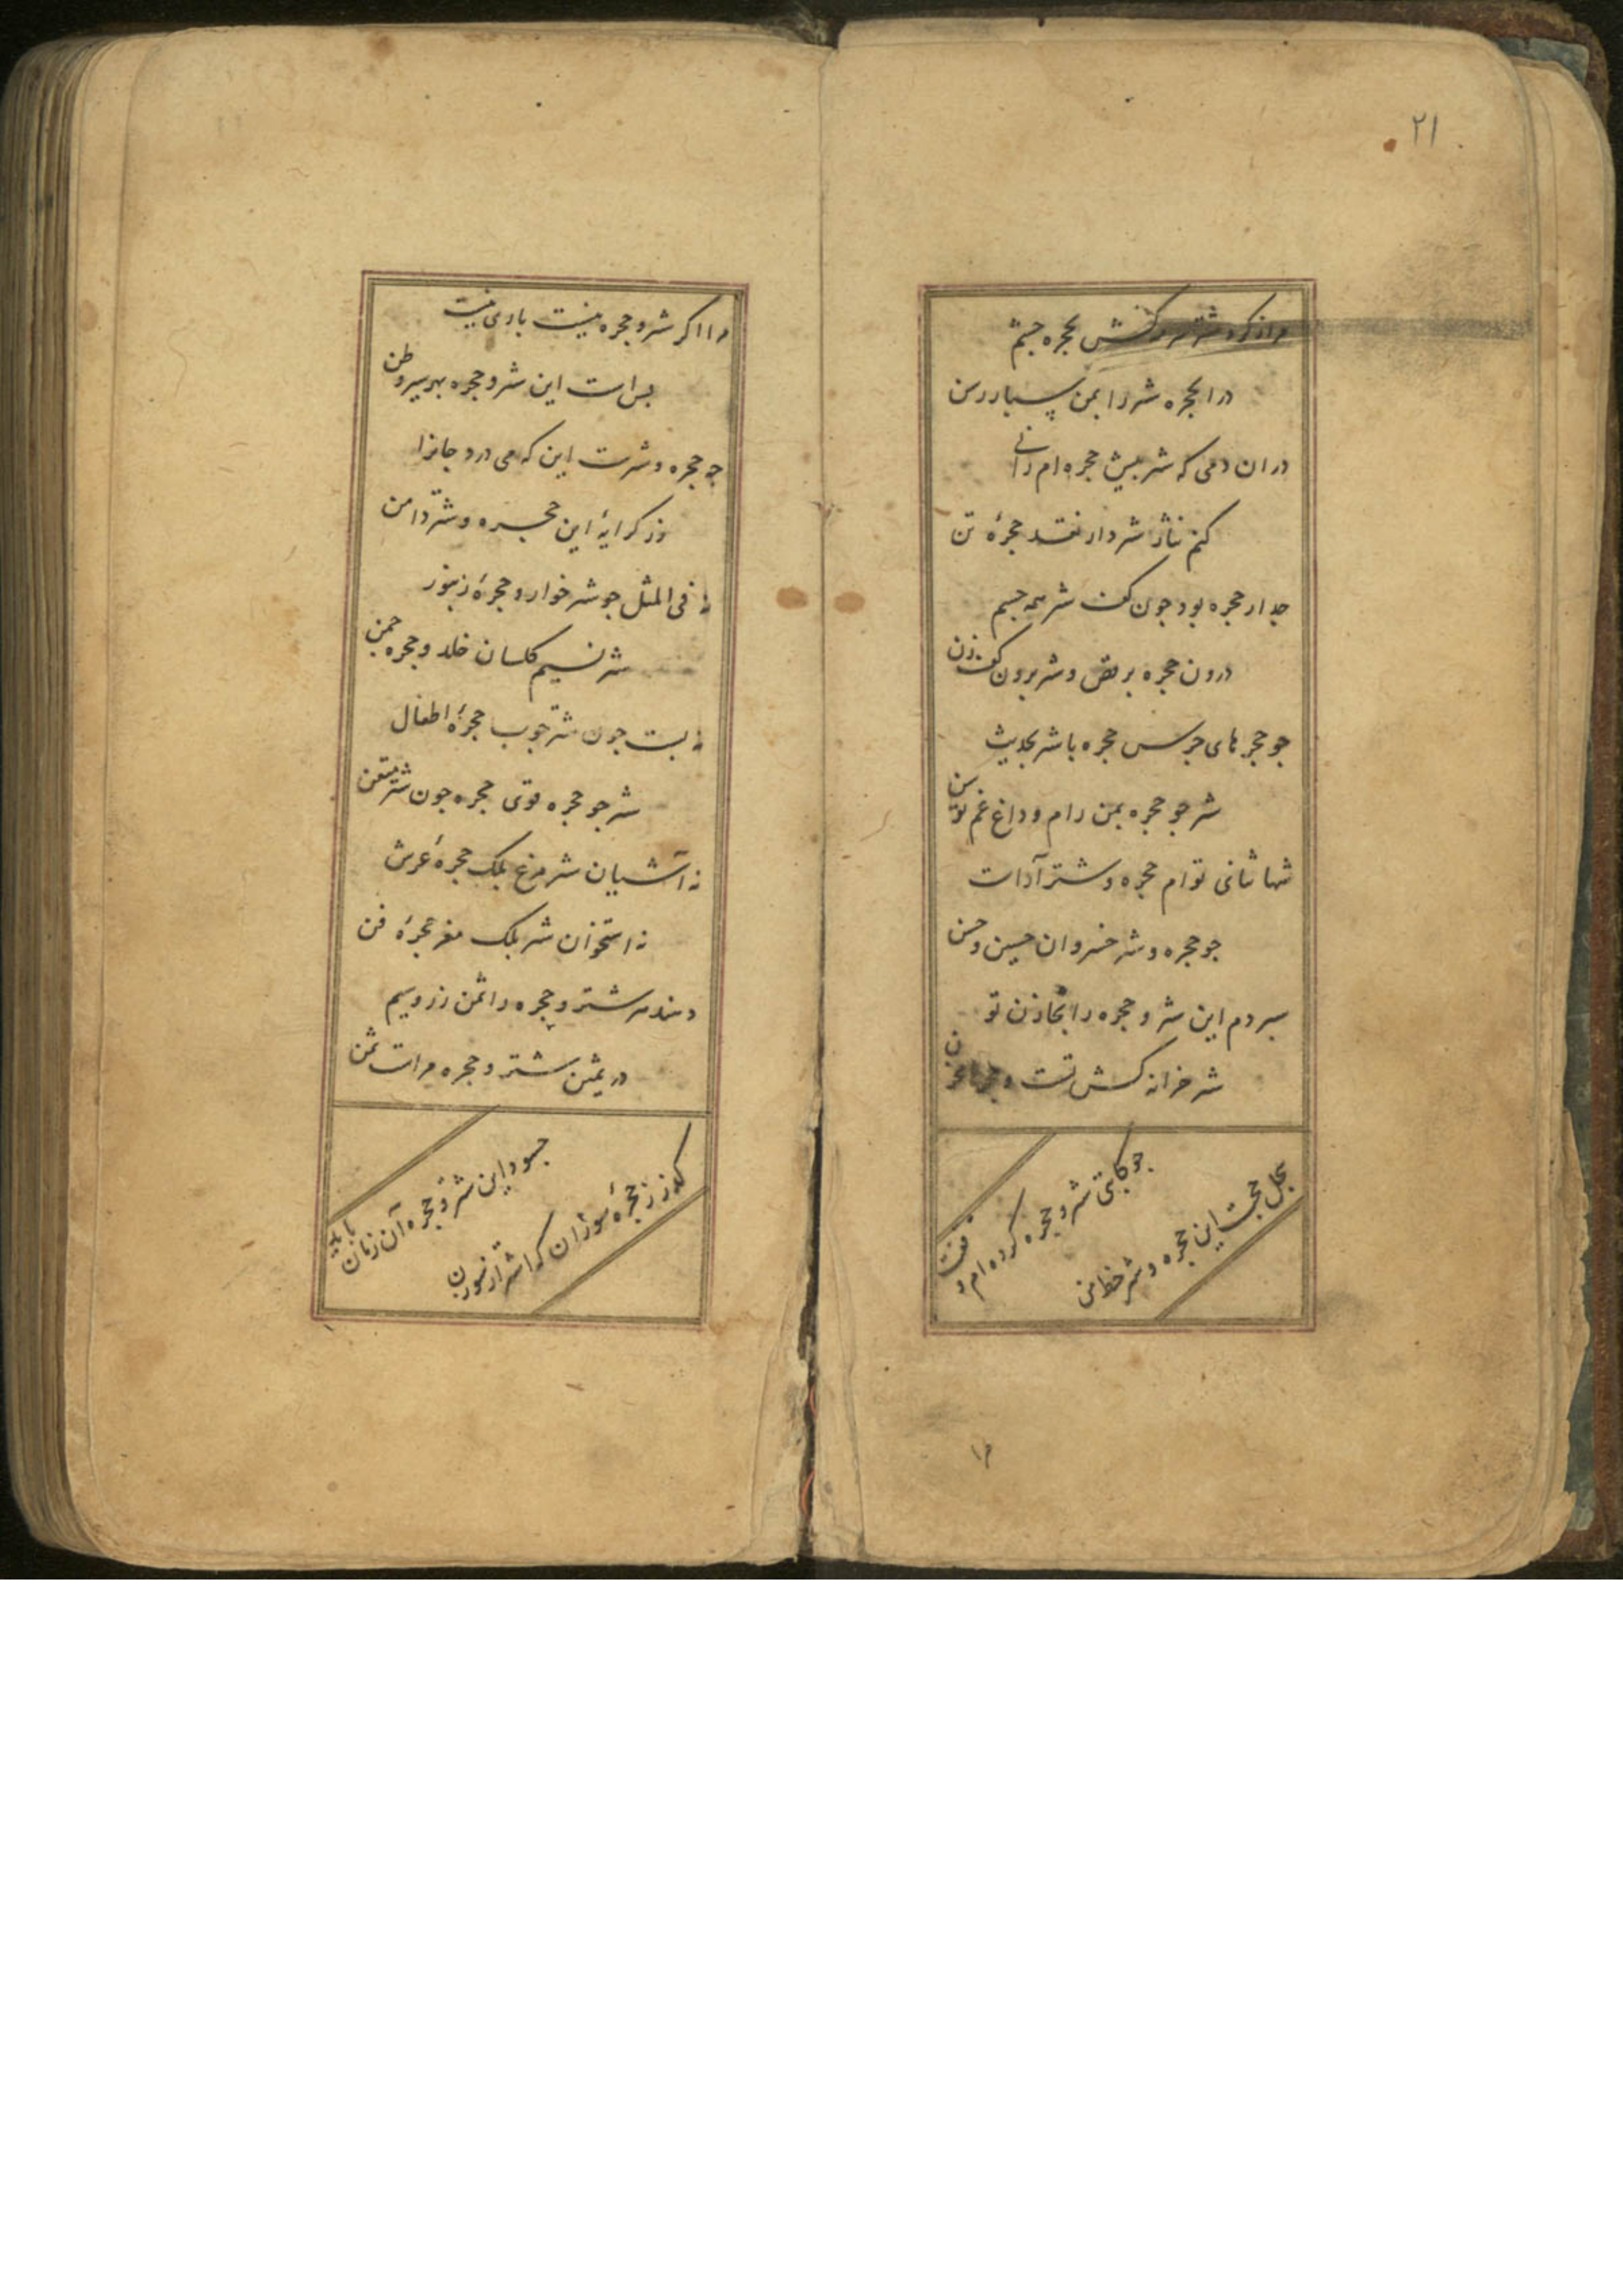 ۲۱
بحجره جسم
درا بحجره شتر را بمن سپار رسن
دران دمی که شتر پیش حجره ام رانی
کنم نثار شتر دار نقد حجرهٔ تن
جدار حجره بود چون کف شتر همه جسم
درون حجره برقص و شتر برون کف زن
چو حجرهای جرس حجره با شتر بحدیث
شتر چو حجره بمن رام و داغ غم توسن
شها ثنای توام حجره و شتر آراست
چو حجره و شتر خسروان حسین و حسن
سپردم این شتر و حجره را بخازن تو
شتر خزانه کش تست و حجره
چو کاتبی شتر و حجره کرده ام
بحل حجت این حجره و شتر خط من
۱۲
مرا اگر شتر و حجره نیست باری نیست
بس است این شتر و حجره بهر سیر و وطن
چه حجره و شترست این که می درد جانرا
وز کرایهٔ این حجره و شتر دامن
نه فی المثل چو شتر خوار و حجرهٔ زنبور
شتر نسیم گلستان خلد و حجره چمن
نه پست چون شتر چوب حجرهٔ اطفال
شتر چو حجره قوی حجره چون شتر متقن
نه آشیان شتر مرغ بلک حجرهٔ عرش
نه استخوان شتر بلک مغز حجرهٔ فن
دهند هر شتر و حجره را ثمن زر و سیم
در ثمین شتر و حجره مراست ثمن
چه سود این شتر و حجره آن زمان باید